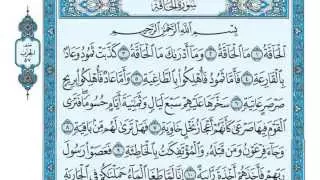 سُورَةُ الْحَاقَّةِ
بِسْمِ اللَّهِ الرَّحْمَٰنِ الرَّحِيمِ
الْحَاقَّةُ ١ مَا الْحَاقَّةُ ٢ وَمَا أَدْرَىٰكَ مَا الْحَاقَّةُ ٣ كَذَّبَتْ ثَمُودُ وَعَادٌ
بِالْقَارِعَةِ ٤ فَأَمَّا ثَمُودُ فَأُهْلِكُوا بِالطَّاغِيَةِ ٥ وَأَمَّا عَادٌ فَأُهْلِكُوا بِرِيحٍ
صَرْصَرٍ عَاتِيَةٍ ٦ سَخَّرَهَا عَلَيْهِمْ سَبْعَ لَيَالٍ وَثَمَٰنِيَةَ أَيَّامٍ حُسُومًا فَتَرَى
الْقَوْمَ فِيهَا صَرْعَىٰ كَأَنَّهُمْ أَعْجَازُ نَخْلٍ خَاوِيَةٍ ٧ فَهَلْ تَرَىٰ لَهُم مِّن بَاقِيَةٍ ٨
وَجَاءَ فِرْعَوْنُ وَمَن قَبْلَهُ وَالْمُؤْتَفِكَٰتُ بِالْخَاطِئَةِ ٩ فَعَصَوْا رَسُولَ
رَبِّهِمْ فَأَخَذَهُمْ أَخْذَةً رَّابِيَةً ١٠ إِنَّا لَمَّا طَغَا الْمَاءُ حَمَلْنَٰكُمْ فِي الْجَارِيَةِ